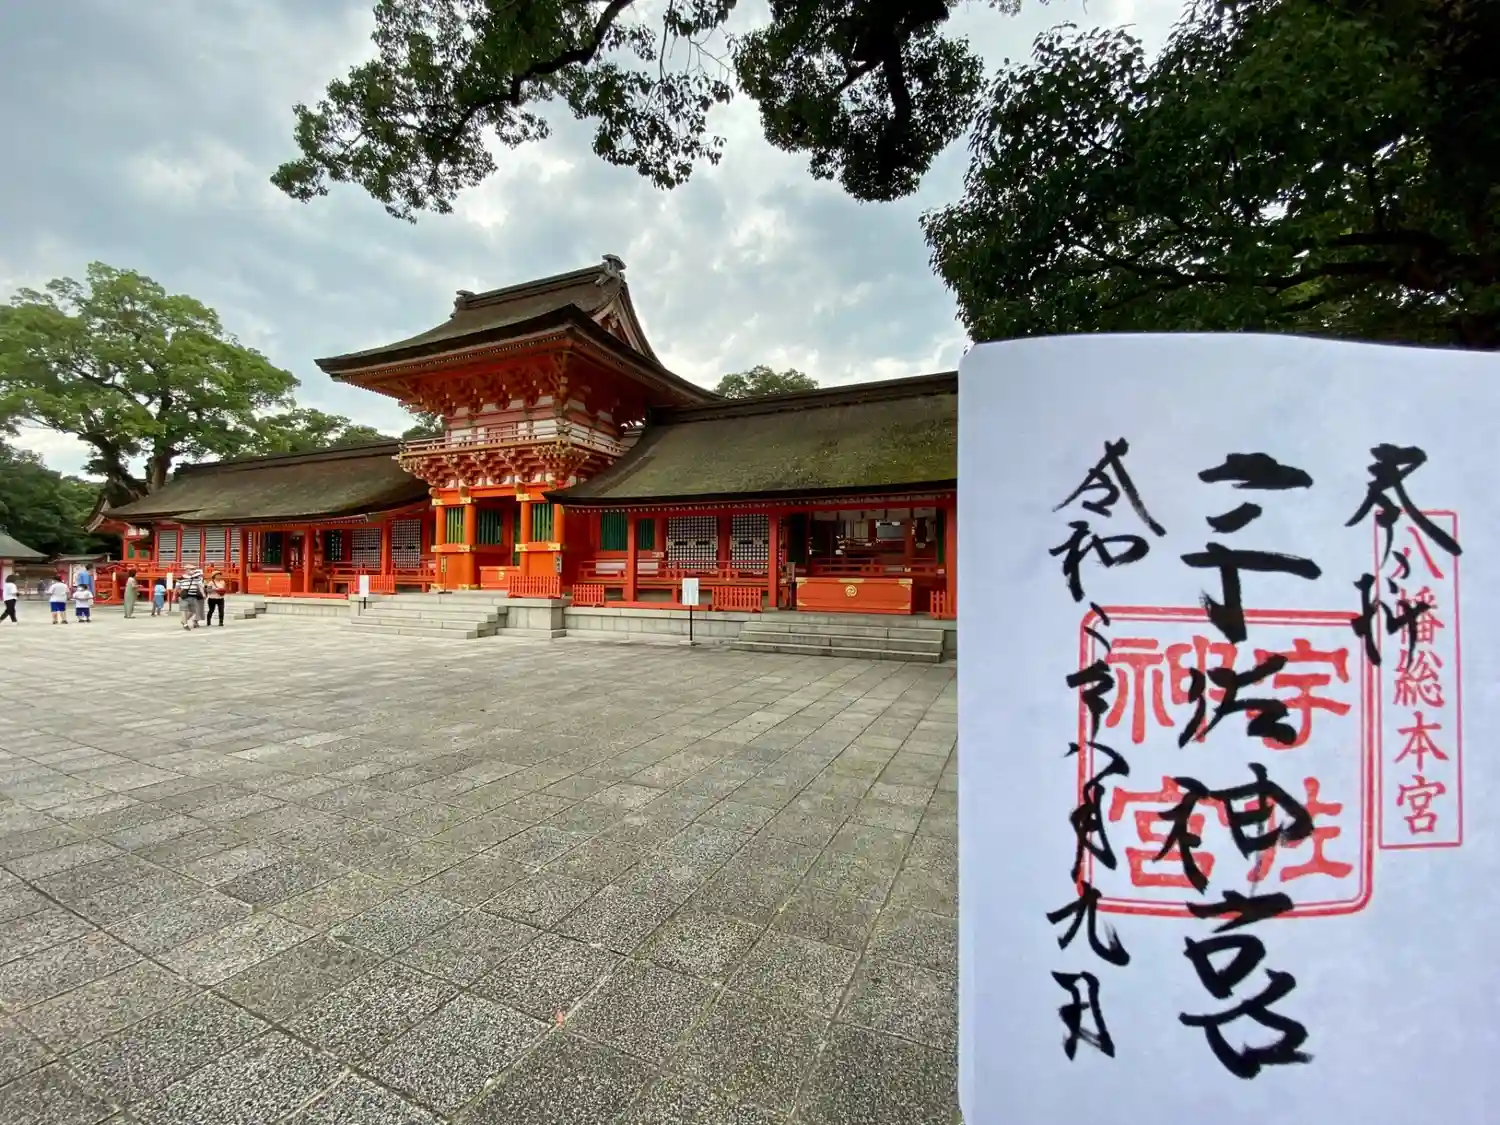 奉拝
八幡総本宮
宇佐神宮
宇佐
神宮
令和二年八月九日